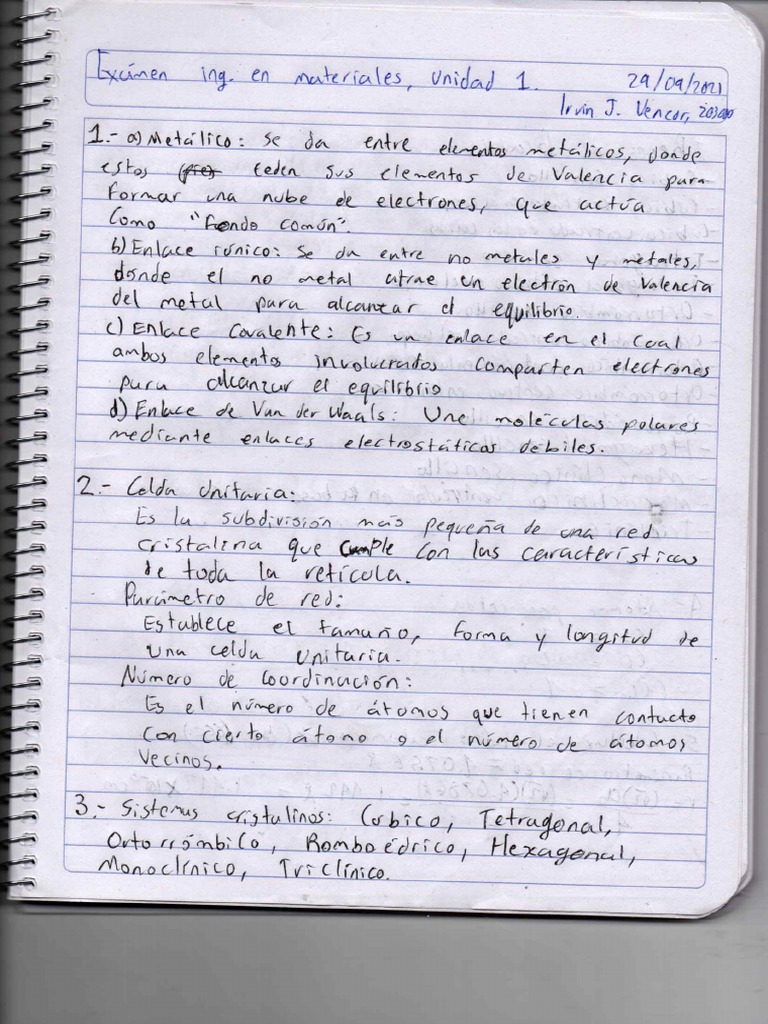 Exámen ing. en materiales, Unidad 1. 29/09/2021
Irvin J.
1.- a) Metálico: Se da entre elementos metálicos, donde
estos ceden sus elementos de Valencia para
formar una nube de electrones, que actúa
Como "fondo común".
b) Enlace iónico: Se da entre no metales y metales,
donde el no metal atrae un electrón de Valencia
del metal para alcanzar el equilibrio.
c) Enlace Covalente: Es un enlace en el cual
ambos elementos involucrados comparten electrones
para alcanzar el equilibrio
d) Enlace de Van der Waals: Une moléculas polares
mediante enlaces electrostáticos débiles.
2.- Celda Unitaria:
Es la subdivisión más pequeña de una red
cristalina que cumple con las características
de toda la retícula.
Parámetro de red:
Establece el tamaño, forma y longitud de
una celda unitaria.
Número de Coordinación:
Es el número de átomos que tienen contacto
con cierto átomo o el número de átomos
vecinos.
3.- Sistemas cristalinos: Cúbico, Tetragonal,
Ortorrómbico, Romboédrico, Hexagonal,
Monoclínico, Triclínico.